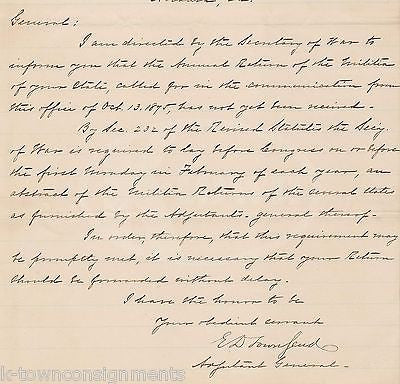 General:
I am directed by the Secretary of War to
inform you that the Annual Return of the Militia
of your State, called for in the communication from
this office of Oct. 13. 1875, has not yet been received.
By Sec. 232 of the Revised Statutes the Sec'y.
of War is required to lay before Congress on or before
the first Monday in February of each year, an
abstract of the Militia Returns of the several States
as furnished by the Adjutants-general thereof.
In order, therefore, that this requirement may
be promptly met, it is necessary that your Return
should be forwarded without delay.
I have the honor to be
Your obedient servant
E D Townsend
Adjutant General.
k-townconsignments